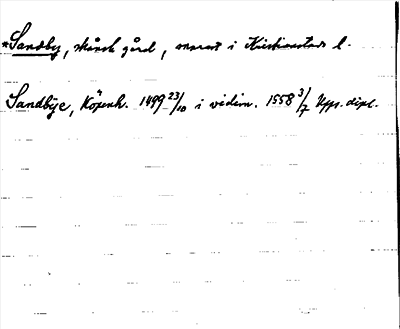 *Sandby, skånsk gård, snarast i Kristianstads l.
Sandbye, Köpenh. 1499 23/10 i vidim. 1558 3/7 Upps. dipl.